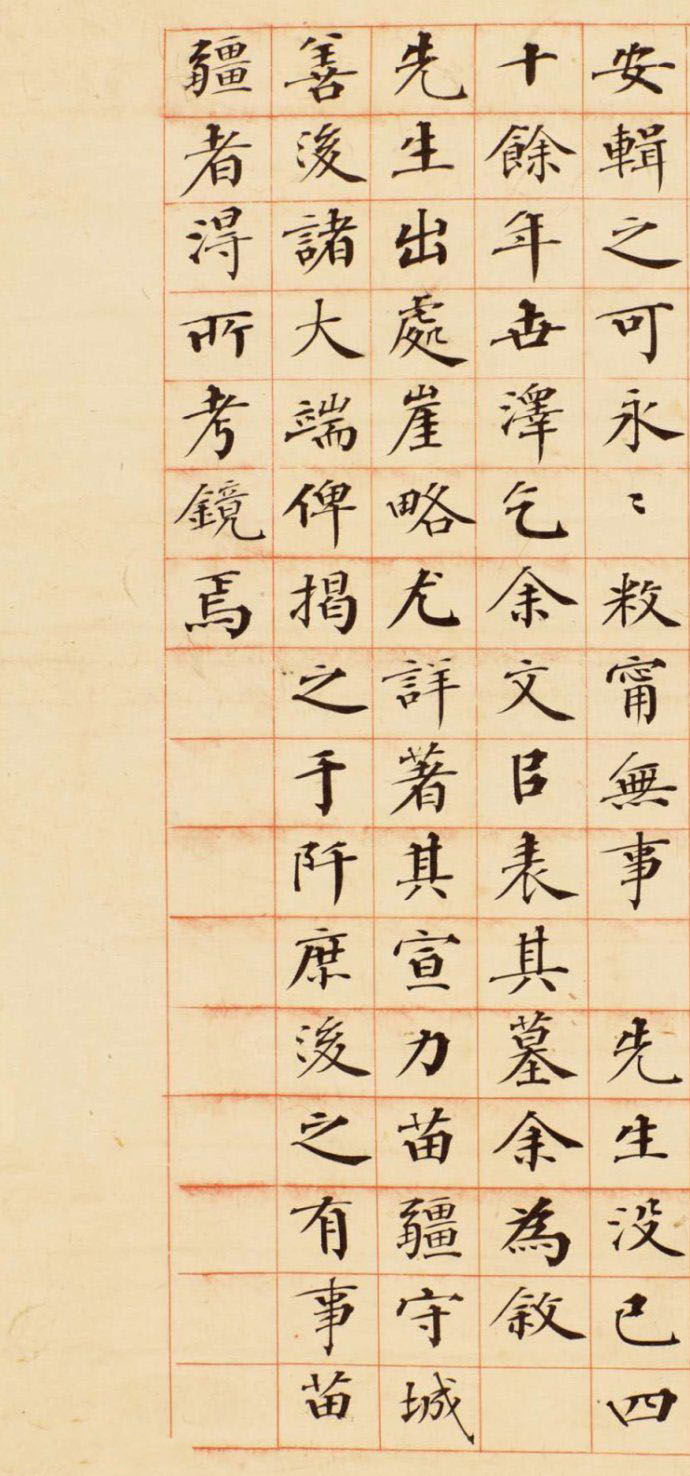 安輯之可永〻敉甯無事　先生没已四
十餘年世澤乞余文㠯表其墓余為敘
先生出處崖略尤詳著其宣力苗疆守城
善後諸大端俾揭之于阡庶後之有事苗
疆者得所考鏡焉